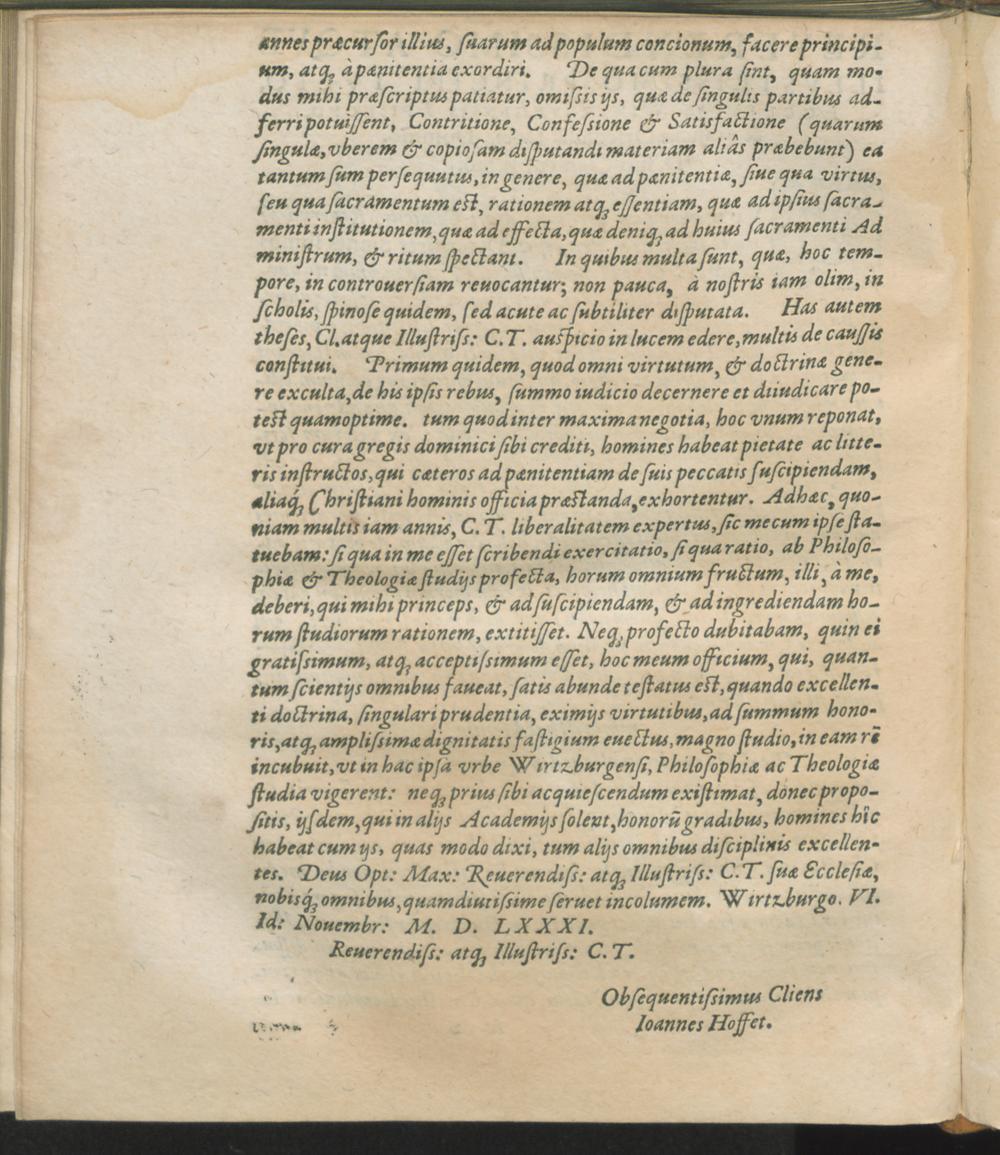 annes præcurſor illius, ſuarum ad populum concionum, facere principi-
um, atq; à pænitentia exordiri. De qua cum plura ſint, quam mo-
dus mihi præſcriptus patiatur, omiſsis ijs, quæ de ſingulis partibus ad-
ferri potuiſſent, Contritione, Confeſsione & Satisfactione (quarum
ſingulæ, vberem & copioſam diſputandi materiam aliâs præbebunt) ea
tantum ſum perſequutus, in genere, quæ ad pænitentiæ, ſiue qua virtus,
ſeu qua ſacramentum eſt, rationem atq; eſſentiam, quæ ad ipſius ſacra-
menti inſtitutionem, quæ ad effecta, quæ deniq; ad huius ſacramenti Ad
miniſtrum, & ritum ſpectant. In quibus multa ſunt, quæ, hoc tem-
pore, in controuerſiam reuocantur; non pauca, à noſtris iam olim, in
ſcholis, ſpinoſe quidem, ſed acute ac ſubtiliter diſputata. Has autem
theſes, Cl. atque Illuſtriſs: C.T. auſpicio in lucem edere, multis de cauſſis
conſtitui. Primum quidem, quod omni virtutum, & doctrinæ gene-
re exculta, de his ipſis rebus, ſummo iudicio decernere et diiudicare po-
teſt quamoptime. tum quod inter maxima negotia, hoc vnum reponat,
vt pro cura gregis dominici ſibi crediti, homines habeat pietate ac litte-
ris inſtructos, qui cæteros ad pænitentiam de ſuis peccatis ſuſcipiendam,
aliaq́; Chriſtiani hominis officia præſtanda, exhortentur. Adhæc, quo-
niam multis iam annis, C.T. liberalitatem expertus, ſic mecum ipſe ſta-
tuebam: ſi qua in me eſſet ſcribendi exercitatio, ſi qua ratio, ab Philoſo-
phiæ & Theologiæ ſtudijs profecta, horum omnium fructum, illi, à me,
deberi, qui mihi princeps, & ad ſuſcipiendam, & ad ingrediendam ho-
rum ſtudiorum rationem, extitiſſet. Neq; profecto dubitabam, quin ei
gratiſsimum, atq; acceptiſsimum eſſet, hoc meum officium, qui, quan-
tum ſcientijs omnibus faueat, ſatis abunde teſtatus eſt, quando excellen-
ti doctrina, ſingulari prudentia, eximijs virtutibus, ad ſummum hono-
ris, atq; ampliſsimæ dignitatis faſtigium euectus, magno ſtudio, in eam rē
incubuit, vt in hac ipſa vrbe Wirtzburgenſi, Philoſophiæ ac Theologiæ
ſtudia vigerent: neq; prius ſibi acquieſcendum exiſtimat, donec propo-
ſitis, ijſdem, qui in alijs Academijs ſolent, honorū gradibus, homines hîc
habeat cum ijs, quas modo dixi, tum alijs omnibus diſciplinis excellen-
tes. Deus Opt: Max: Reuerendiſs: atq; Illuſtriſs: C.T. ſuæ Eccleſiæ,
nobisq́; omnibus, quamdiutiſsime ſeruet incolumem. Wirtzburgo. VI.
Id: Nouembr: M. D. LXXXI.
Reuerendiſs: atq; Illuſtriſs: C.T.
Obſequentiſsimus Cliens
Ioannes Hoffet.